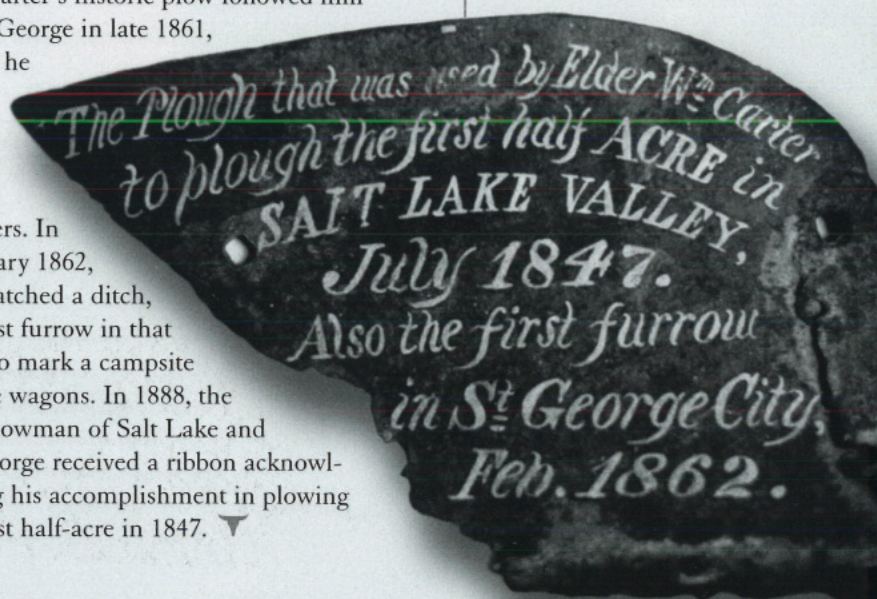 arter's historic plow followed him
George in late 1861,
he
ers. In
ary 1862,
atched a ditch,
st furrow in that
o mark a campsite
e wagons. In 1888, the
owman of Salt Lake and
orge received a ribbon acknowl-
g his accomplishment in plowing
st half-acre in 1847.
The Plough that was used by Elder Wm Carter
to plough the first half ACRE in
SALT LAKE VALLEY,
July 1847.
Also the first furrow
in St George City,
Feb. 1862.